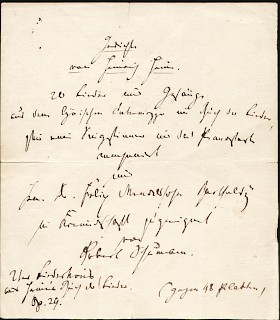 Gedichte
von Heinrich Heine.
20 Lieder und Gesänge
aus dem Lyrischen Intermezzo im Buch der Lieder
für eine Singstimme und das Pianoforte
componirt
und
Hrn. D. Felix Mendelssohn Bartholdy
in Freundschaft zugeeignet
von
Robert Schumann.
aus Heine's Buch der Lieder.
Op. 29.
(gegen 48 Platten)